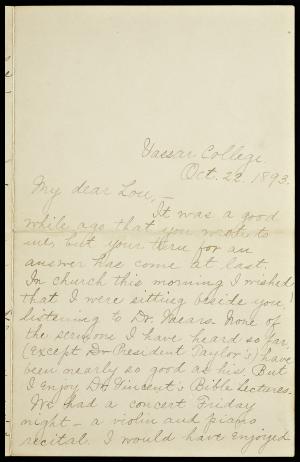 Vassar College
Oct. 22. 1893.
My dear Lou,—
It was a good
while ago that you wrote to
me, but your turn for an
answer has come at last.
In church this morning I wished
that I were sitting beside you,
listening to Dr. Mears. None of
the sermons I have heard so far,
(except Dr President Taylor's) have
been nearly so good as his. But
I enjoy Dr. Vincent's Bible lectures.
We had a concert Friday
night – a violin and piano
recital. I would have enjoyed